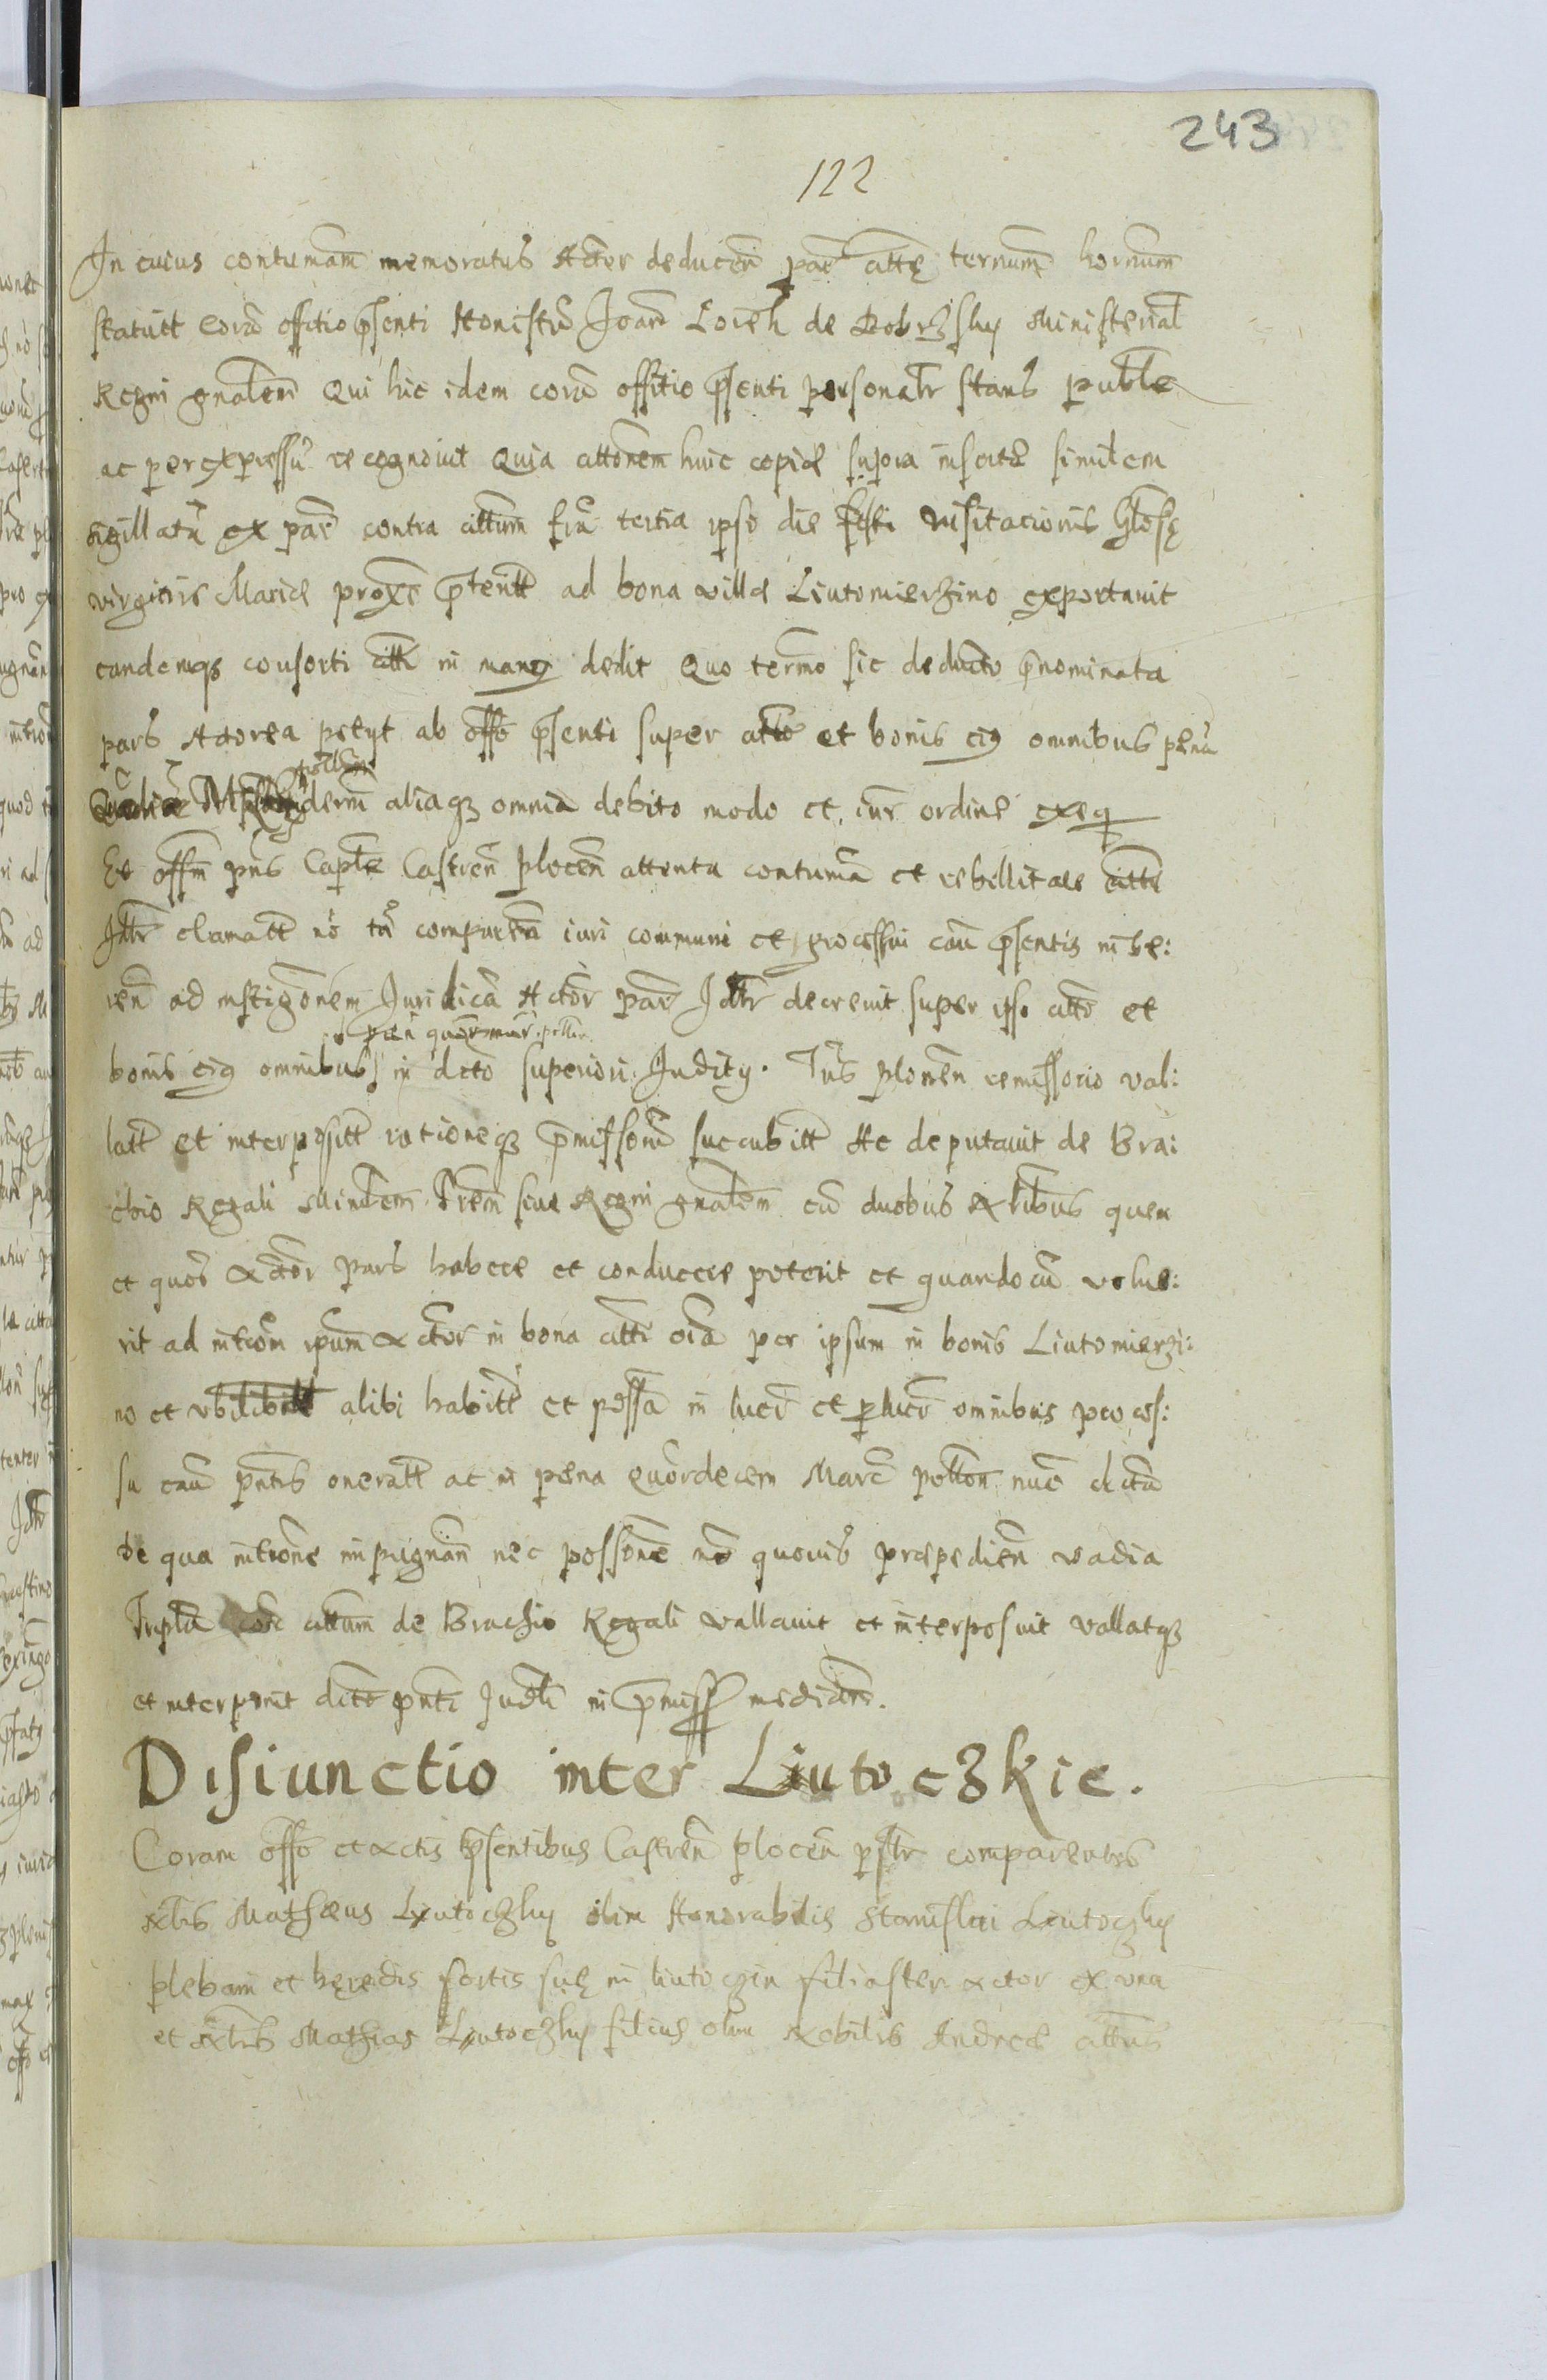 243
122
In cuius contumām memoratus Actor deducēn par citte ternum hornum
statuit corā offitio p̄senti Honistū Joanē Loreh de Dobrzisky Ministerial
Regni gnālem Qui hic idem corā offitio p̄senti personalr stans puble
ac per expressū recognovit Quia cittōnem huic copie supra insertæ similem
sigillatā ex par contra cittum frā tertia ipso die festi visitacionis Glose
virginis Mariæ proxe p̄teritt ad bona villæ Liutomierzino exportavit
eandemqȝ consorti citti in man9 dedit Quo termō sic deducto p̄nominata
pars Actorea petyt ab offō p̄senti super citto et bonis ei9 omnibus pænā
aliaqȝ omnia debito modo et iur ordine exeq
Et offm pns Capte Castren plocen attenta contumā et rebillitate citti
Idtr clamatt nō tn̄ comparēn iuri communi et processui cau p̄sentis inhe:
ren ad instigōnem Juridicā Actor par Idtr decrevit super ipso citto et
bonis ei9 omnibus in dcto superiori Judity. Trns plonen remissorio val:
latt et interpositt rationeqȝ p̄missorū succubitt Ac deputavit de Bra:
chio Regali Mindem Trem sive Regni gnālem cū duobus Nlibus quem
et quos Actor pars habere et conducere poterit et quandocū volue:
rit ad intrōm ipsum Actor in bona citti oīa per ipsum in bonis Liutomierzi:
no et ubilibett alibi habitt et possa in lucr et p lucr omnibus proces:
su cau pntis oneratt ac in pæna Quordecem Marc pollon nuc dicta
De qua intrōne inpugnān nec possōne nō quovis præpedien vadia
Tripla cittum de Brachio Regali vallavit et interposuit vallatqȝ
et interponit dicto pnti Judti in p̄miss mediān.
Disiunctio inter Liutoczkie.
Coram offō et Actis p̄sentibus Castren plocen pstr comparentes
Nlis Mathæus Liutoczky olim Honorabilis Stanislai Liutoczky
plebani et heredis sortis suę in liutoczin filiaster Actor ex una
et Nlis Mathias Liutoczky filius olim Nobilis Andreæ cittus